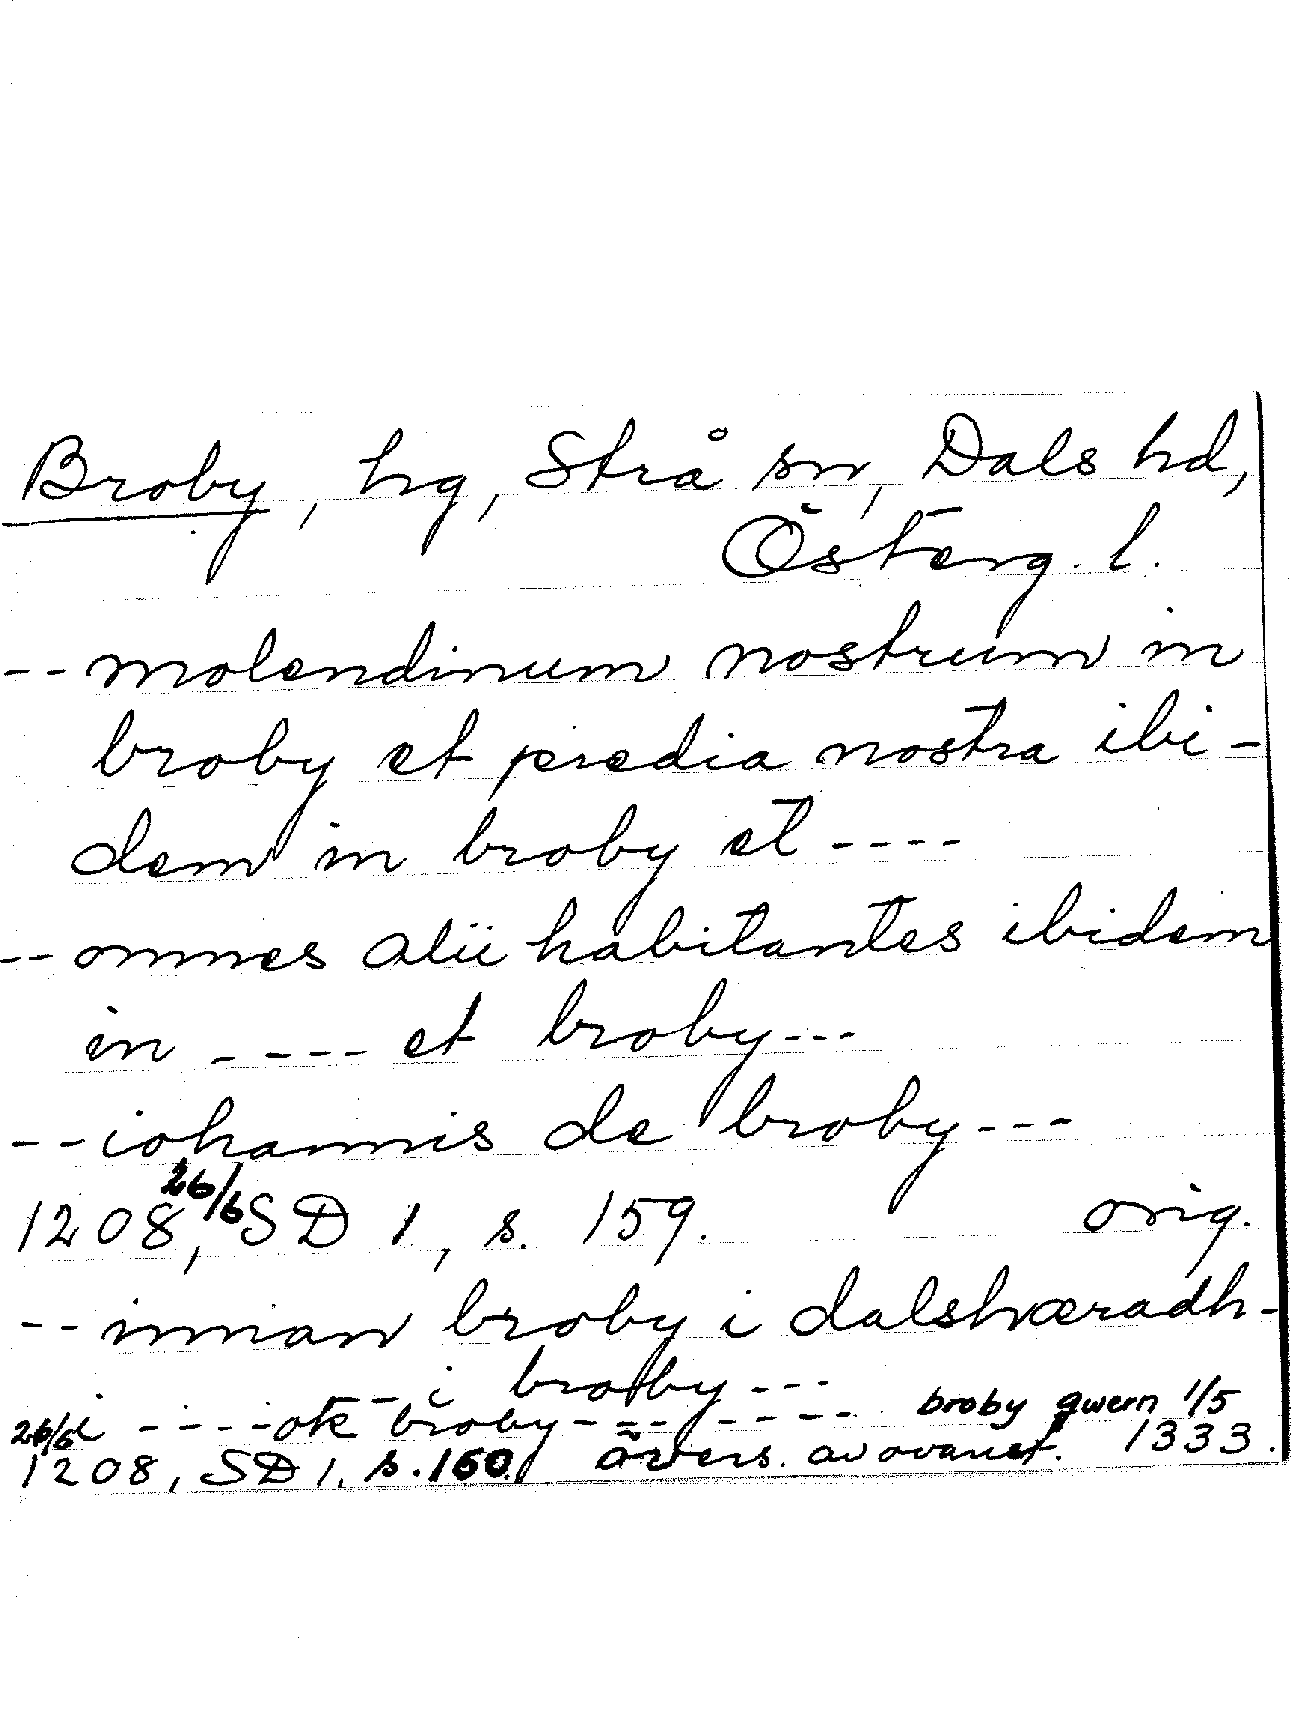 Broby, hg, Strå sn, Dals hd,
Österg. l.
-- molendinum nostrum in
broby et predia nostra ibi-
dem in broby et ----
-- omnes alii habitantes ibidem
in ---- et broby ---
-- iohannis de broby ---
1208, 26/6 SD 1, s. 159. orig.
-- innan broby i dalshæradh -
- i broby ---
i ---- ok broby ---- ---- broby qwern 1/5
26/6 1208, SD 1, s. 160 övers. av ovanst. 1333.